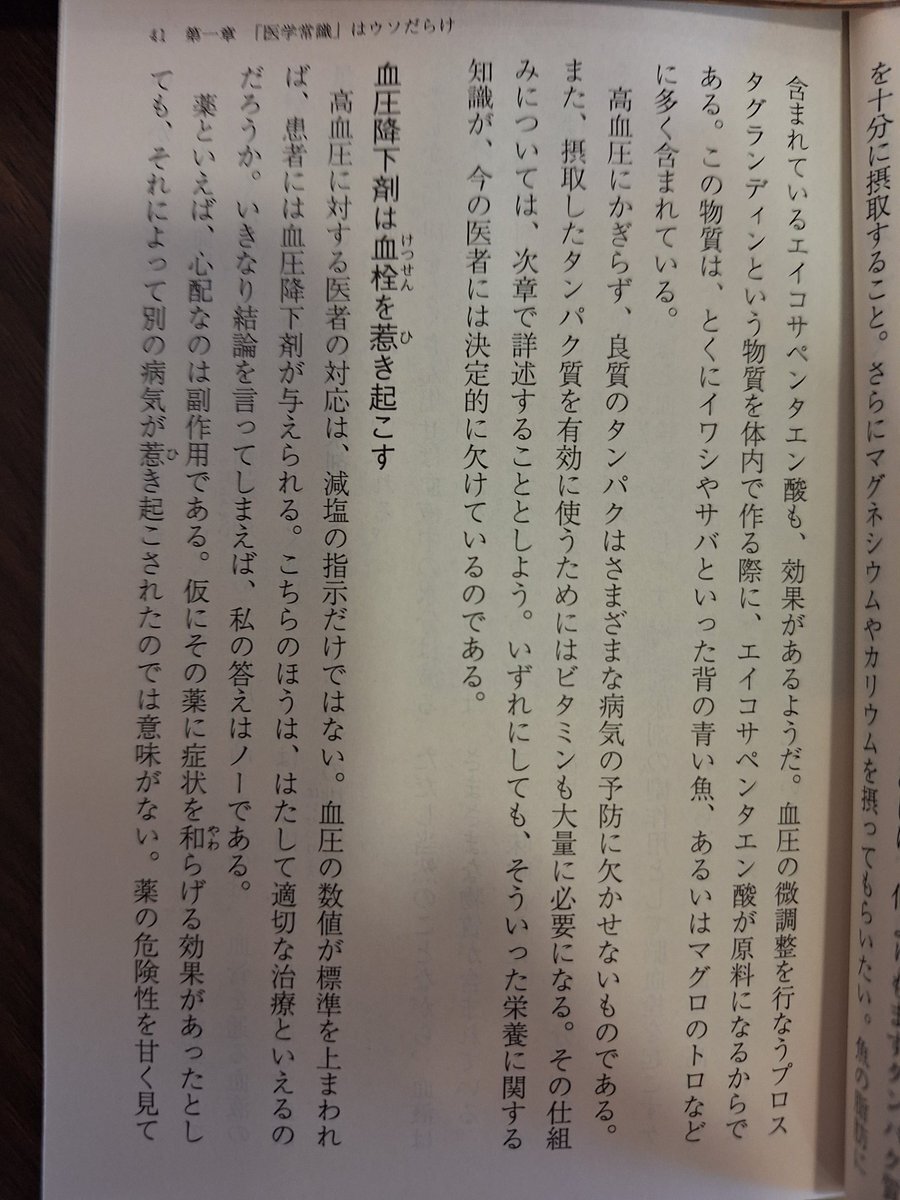 を十分に摂取すること。さらにマグネシウムやカリウムを摂ってもらいたい。魚の脂肪に
含まれているエイコサペンタエン酸も、効果があるようだ。血圧の微調整を行なうプロス
タグランディンという物質を体内で作る際に、エイコサペンタエン酸が原料になるからで
ある。この物質は、とくにイワシやサバといった背の青い魚、あるいはマグロのトロなど
に多く含まれている。
高血圧にかぎらず、良質のタンパクはさまざまな病気の予防に欠かせないものである。
また、摂取したタンパク質を有効に使うためにはビタミンも大量に必要になる。その仕組
みについては、次章で詳述することとしよう。いずれにしても、そういった栄養に関する
知識が、今の医者には決定的に欠けているのである。
血圧降下剤は血栓を惹き起こす
けっせん
ひ
高血圧に対する医者の対応は、減塩の指示だけではない。血圧の数値が標準を上まわれ
ば、患者には血圧降下剤が与えられる。こちらのほうは、はたして適切な治療といえるの
だろうか。いきなり結論を言ってしまえば、私の答えはノーである。
薬といえば、心配なのは副作用である。仮にその薬に症状を和らげる効果があったとし
やわ
ても、それによって別の病気が惹き起こされたのでは意味がない。薬の危険性を甘く見て
ひ
41 第一章 「医学常識」はウソだらけ